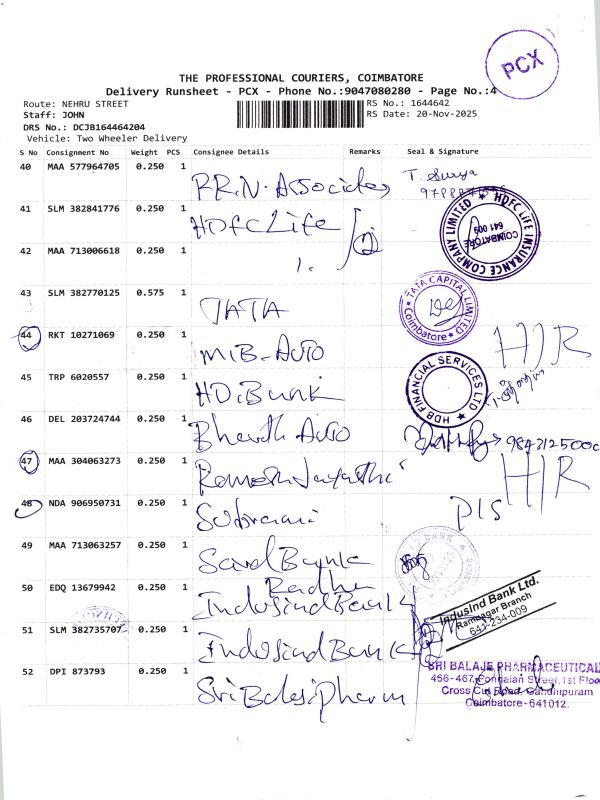 PCX
THE PROFESSIONAL COURIERS, COIMBATORE
Delivery Runsheet - PCX - Phone No.:9047080280 - Page No.:4
Route: NEHRU STREET
RS No.: 1644642
Staff: JOHN
RS Date: 20-Nov-2025
DRS No.: DCJB164464204
Vehicle: Two Wheeler Delivery
S No Consignment No Weight PCS Consignee Details Remarks Seal & Signature
40 MAA 577964705 0.250 1 R.R.N. Associates T. Surya
41 SLM 382841776 0.250 1 HDFC Life
HDFC LIFE INSURANCE COMPANY LIMITED
COIMBATORE
641 009
42 MAA 713006618 0.250 1
43 SLM 382770125 0.575 1 TATA
TATA CAPITAL LIMITED
Coimbatore
44 RKT 10271069 0.250 1 M.B-Auto
45 TRP 6020557 0.250 1 HD.Bank
HDB FINANCIAL SERVICES LTD
46 DEL 203724744 0.250 1 Bharath Auto
47 MAA 304063273 0.250 1
48 NDA 906950731 0.250 1 Subramani
49 MAA 713063257 0.250 1
BANK
50 EDQ 13679942 0.250 1 Radha
IndusindBank
IndusInd Bank Ltd.
Ramnagar Branch
641-234-009
51 SLM 382735707 0.250 1 IndusindBank
52 DPI 873793 0.250 1
SRI BALAJE PHARMACEUTICAL
466-467, Ponnaian Street, 1st Floo
Cross Cut Road, Gandhipuram
Coimbatore-641012.